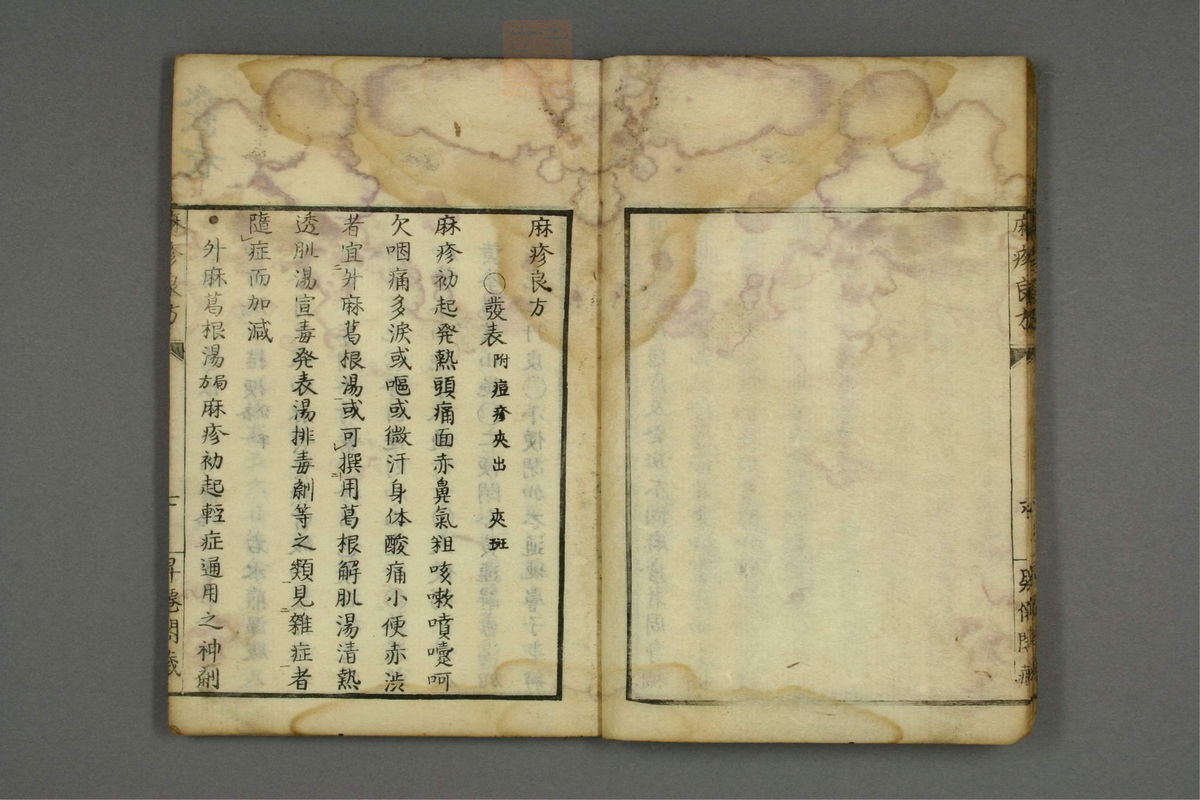 麻疹良方
麻疹良方
○發表 附 痘疹夾出 夾斑
麻疹初起発熱頭痛面赤鼻氣粗咳嗽噴嚏呵
欠咽痛多涙或嘔或微汗身体酸痛小便赤渋
者宜升麻葛根湯或可撰用葛根解肌湯清熱
透肌湯宣毒発表湯排毒劑等之類見雜症者
隨症而加減
升麻葛根湯 局方 麻疹初起輕症通用之神劑
麻疹良方